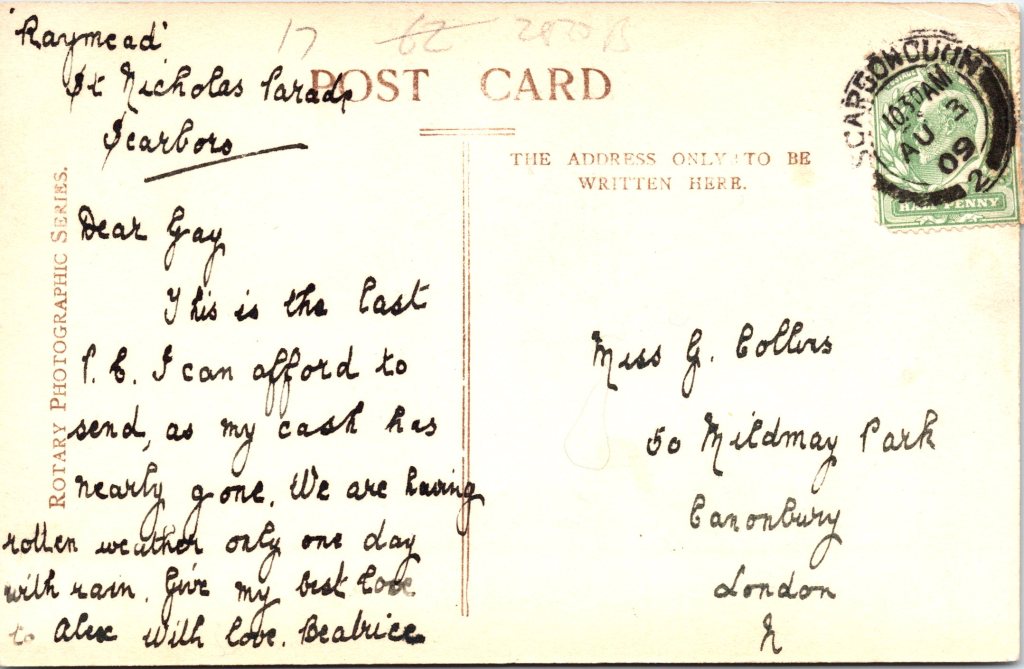 'Raymead'
St Nicholas Parade
Scarboro
Dear Gay
This is the last
P.C. I can afford to
send, as my cash has
nearly gone. We are having
rotten weather only one day
with rain. Give my best love
to Alex with love. Beatrice
ROTARY PHOTOGRAPHIC SERIES.
17 62
POST CARD
THE ADDRESS ONLY TO BE
WRITTEN HERE.
SCARBOROUGH
1030AM
AU 3
09
2
HALF PENNY
Miss G. Collins
50 Mildmay Park
Canonbury
London
N